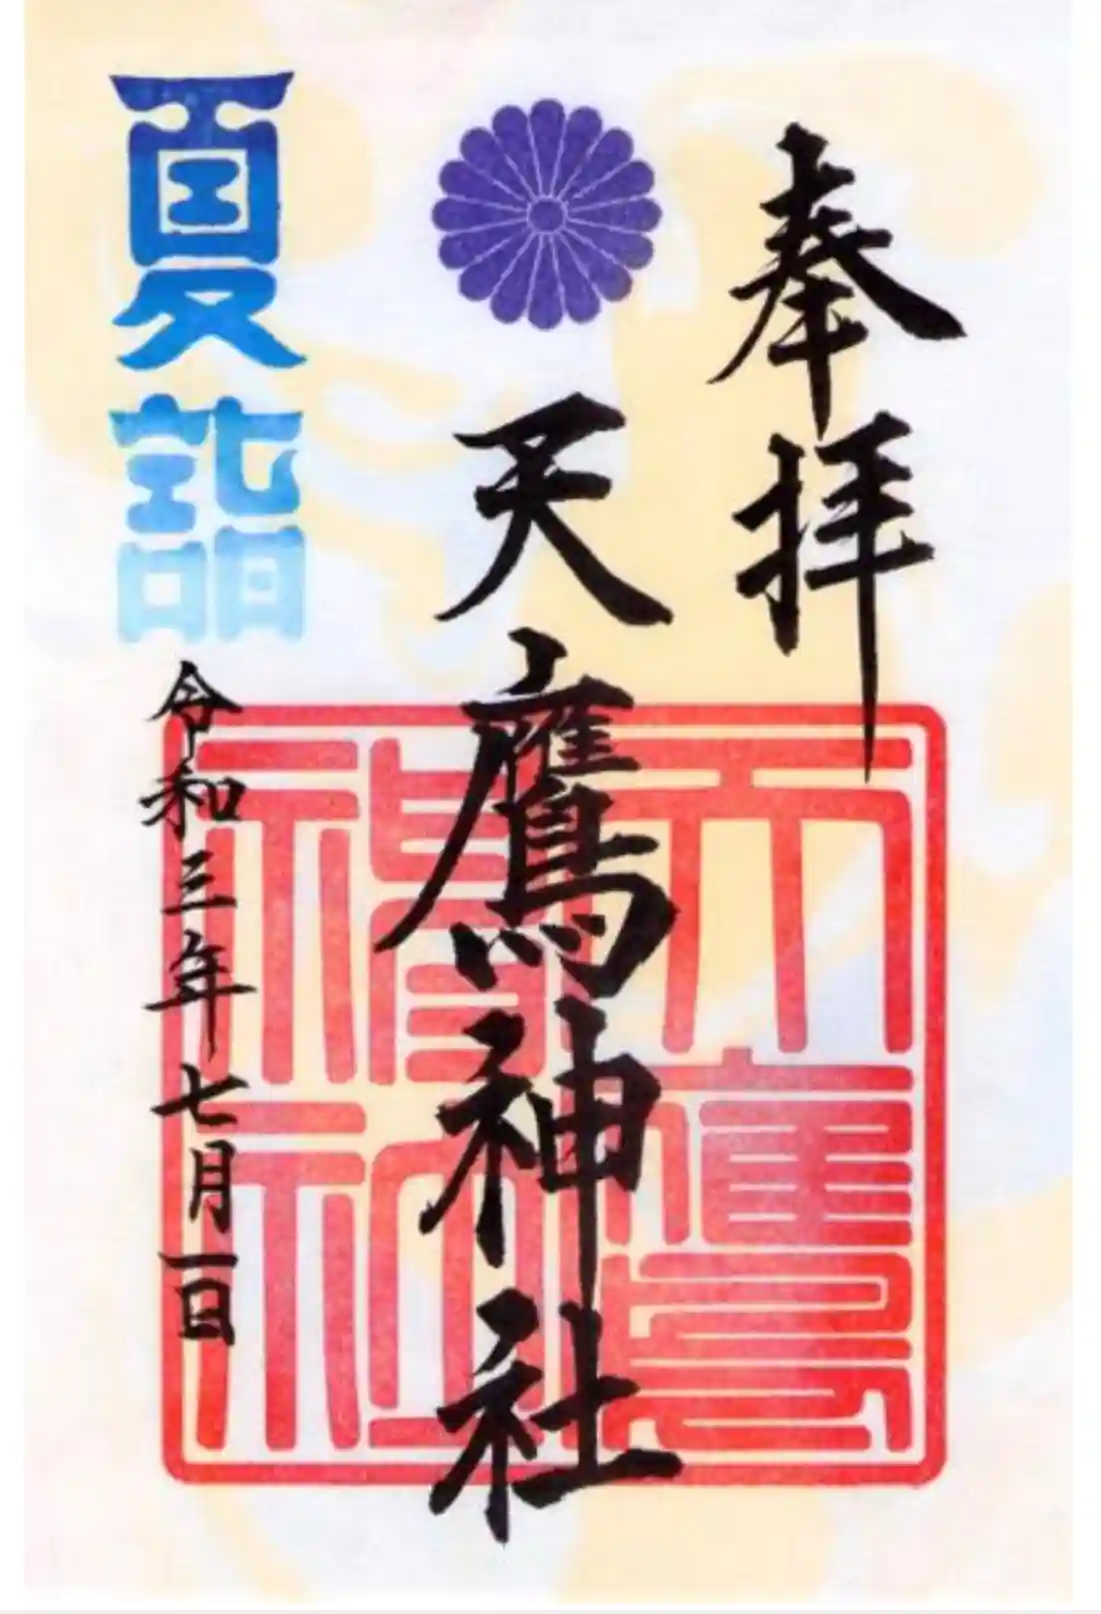 奉拝
天鷹神社
天鷹神社
夏詣
令和三年七月一日